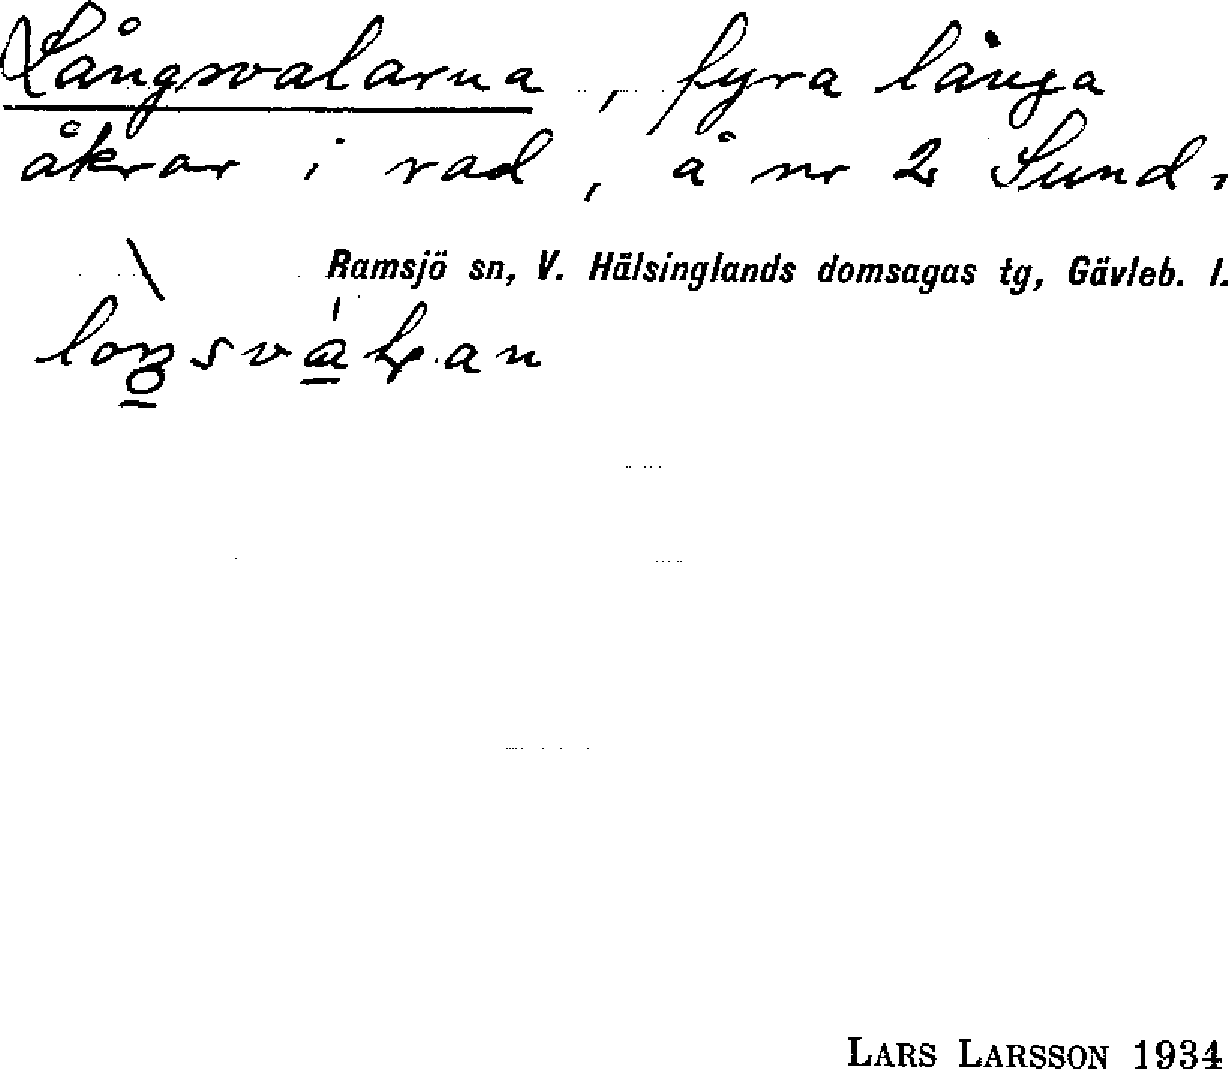 Långsvalarna, fyra långa
åkrar i rad, å nr 2 Sund.
Ramsjö sn, V. Hälsinglands domsagas tg, Gävleb. l.
LARS LARSSON 1934